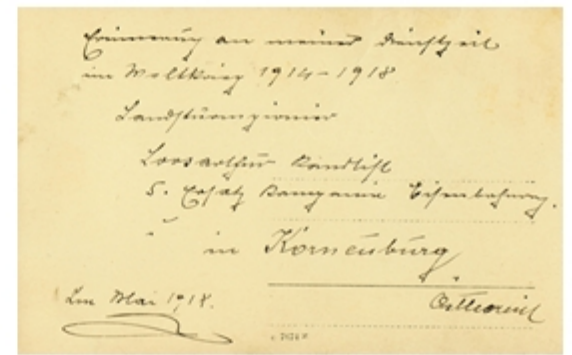 Erinnerung an meiner Dienstzeit
im Weltkrieg 1914-1918
Landsturmpionier
5. Ersatz Kompanie Eisenbahnreg.
" in Korneuburg
Im Mai 1918.